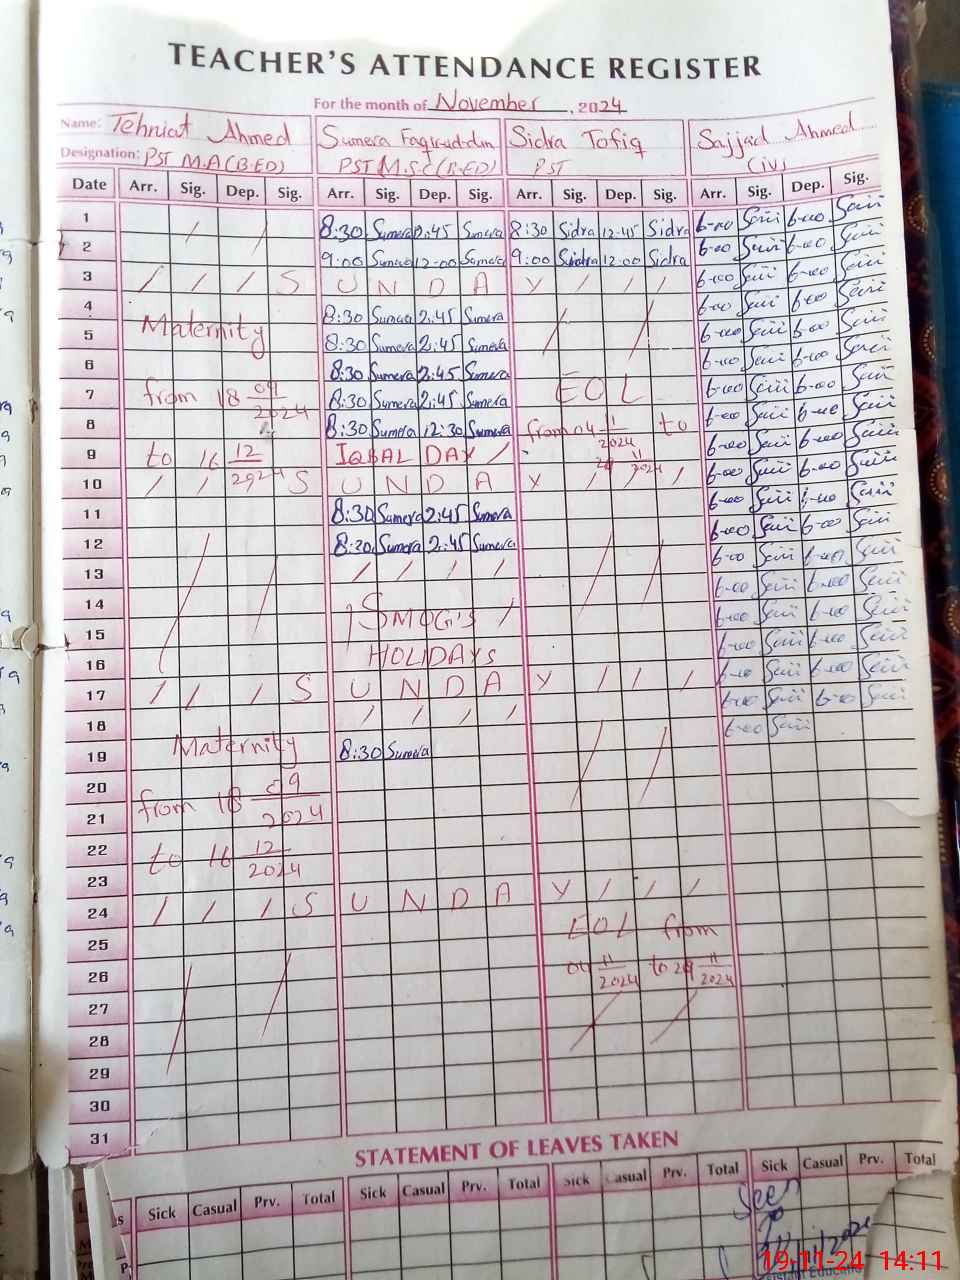 TEACHER'S ATTENDANCE REGISTER
For the month of November, 2024
Name: Tehniat Ahmed Sumera Faqir-ud-din Sidra Tofiq Sajjad Ahmed
Designation: PST M.A(B.ED) PST M.S.C(B.ED) PST (iv)
Date Arr. Sig. Dep. Sig. Arr. Sig. Dep. Sig. Arr. Sig. Dep. Sig. Arr. Sig. Dep. Sig.
1 8:30 Sumera 2:45 Sumera 8:30 Sidra 12:45 Sidra 6-00 6-00
2 9:00 Sumera 12-00 Sumera 9:00 Sidra 12:00 Sidra 6-00 6-00
3 / / / S U N D A Y / / / 6-00 6-00
4 8:30 Sumera 2:45 Sumera 6-00 6-00
5 Maternity 8:30 Sumera 2:45 Sumera 6-00 6-00
6 8:30 Sumera 2:45 Sumera 6-00 6-00
7 from 18 09/2024 8:30 Sumera 2:45 Sumera EOL 6-00 6-00
8 8:30 Sumera 12:30 Sumera from 04 11/2024 to 6-00 6-00
9 to 16 12/2024 IQBAL DAY / 29 11/2024 6-00 6-00
10 / / S U N D A Y / / / 6-00 6-00
11 8:30 Sumera 2:45 Sumera 6-00
12 8:30 Sumera 2:45 Sumera 6-00 6-00
13 / / / / 6-00 6-00
14 SMOG'S 6-00 6-00
15 6-00 6-00
16 HOLIDAYS 6-00 6-00
17 / / / S U N D A Y / / / 6-00 6-00
18 / / / / 6-00 6-00
19 Maternity 8:30 Sumera 6-00
20
21 from 18 09/2024
22 to 16 12/2024
23
24 / / / S U N D A Y / / /
25 EOL from
26 04 11/2024 to 29 11/2024
27
28
29
30
31
STATEMENT OF LEAVES TAKEN
Sick Casual Prv. Total Sick Casual Prv. Total Sick Casual Prv. Total Sick Casual Prv. Total
Seen
19-11-24 14:11